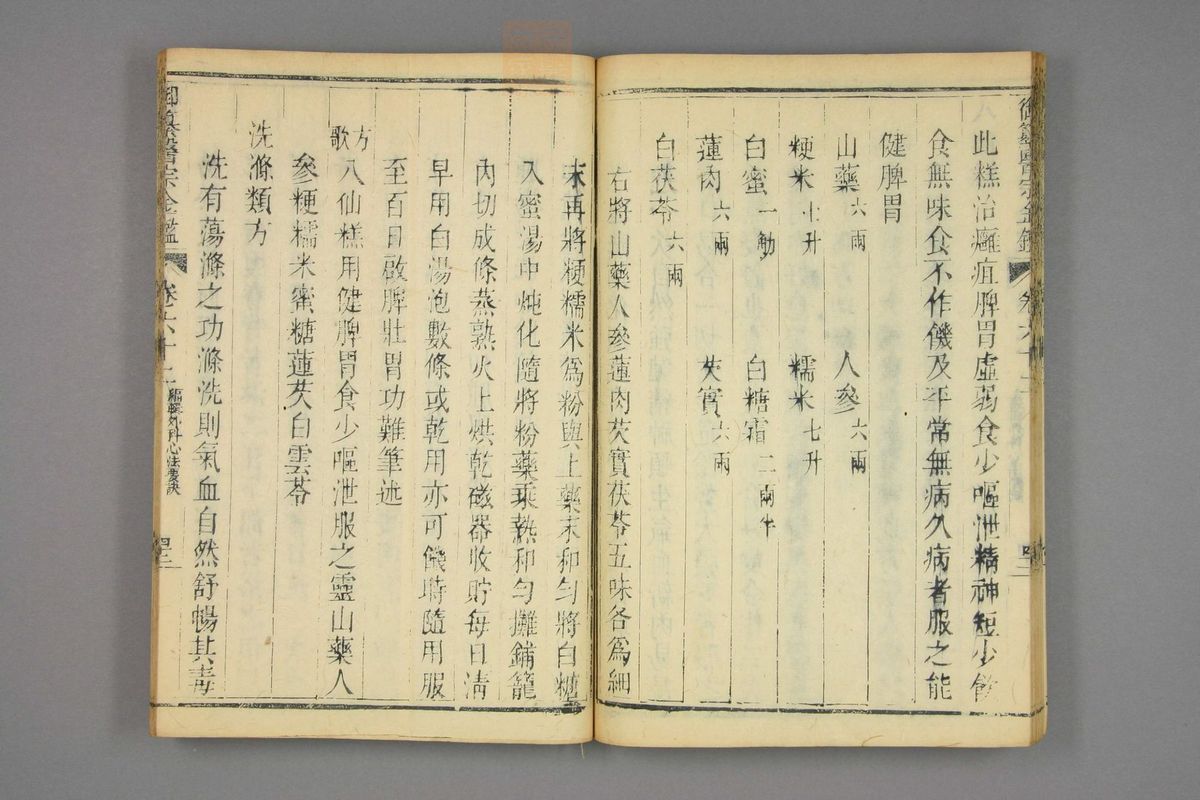 此糕治癰疽脾胃虛弱食少嘔泄精神短少飲
食無味食不作饑及平常無病久病者服之能
健脾胃
山藥六兩 人參六兩
粳米七升 糯米七升
白蜜一觔 白糖霜二兩半
蓮肉六兩 芡實六兩
白茯苓六兩
右將山藥人參蓮肉芡實茯苓五味各為細
末再將粳糯米為粉與上藥末和勻將白糖
入蜜湯中燉化隨將粉藥乘熱和勻攤鋪籠
內切成條蒸熟火上烘乾磁器收貯每日清
早用白湯泡數條或乾用亦可饑時隨用服
至百日啟脾壯胃功難筆述
方歌 八仙糕用健脾胃食少嘔泄服之靈山藥人
參粳糯米蜜糖蓮芡白雲苓
洗滌類方
洗有蕩滌之功滌洗則氣血自然舒暢其毒
御纂醫宗金鑑 卷六十二 編輯外科心法要訣